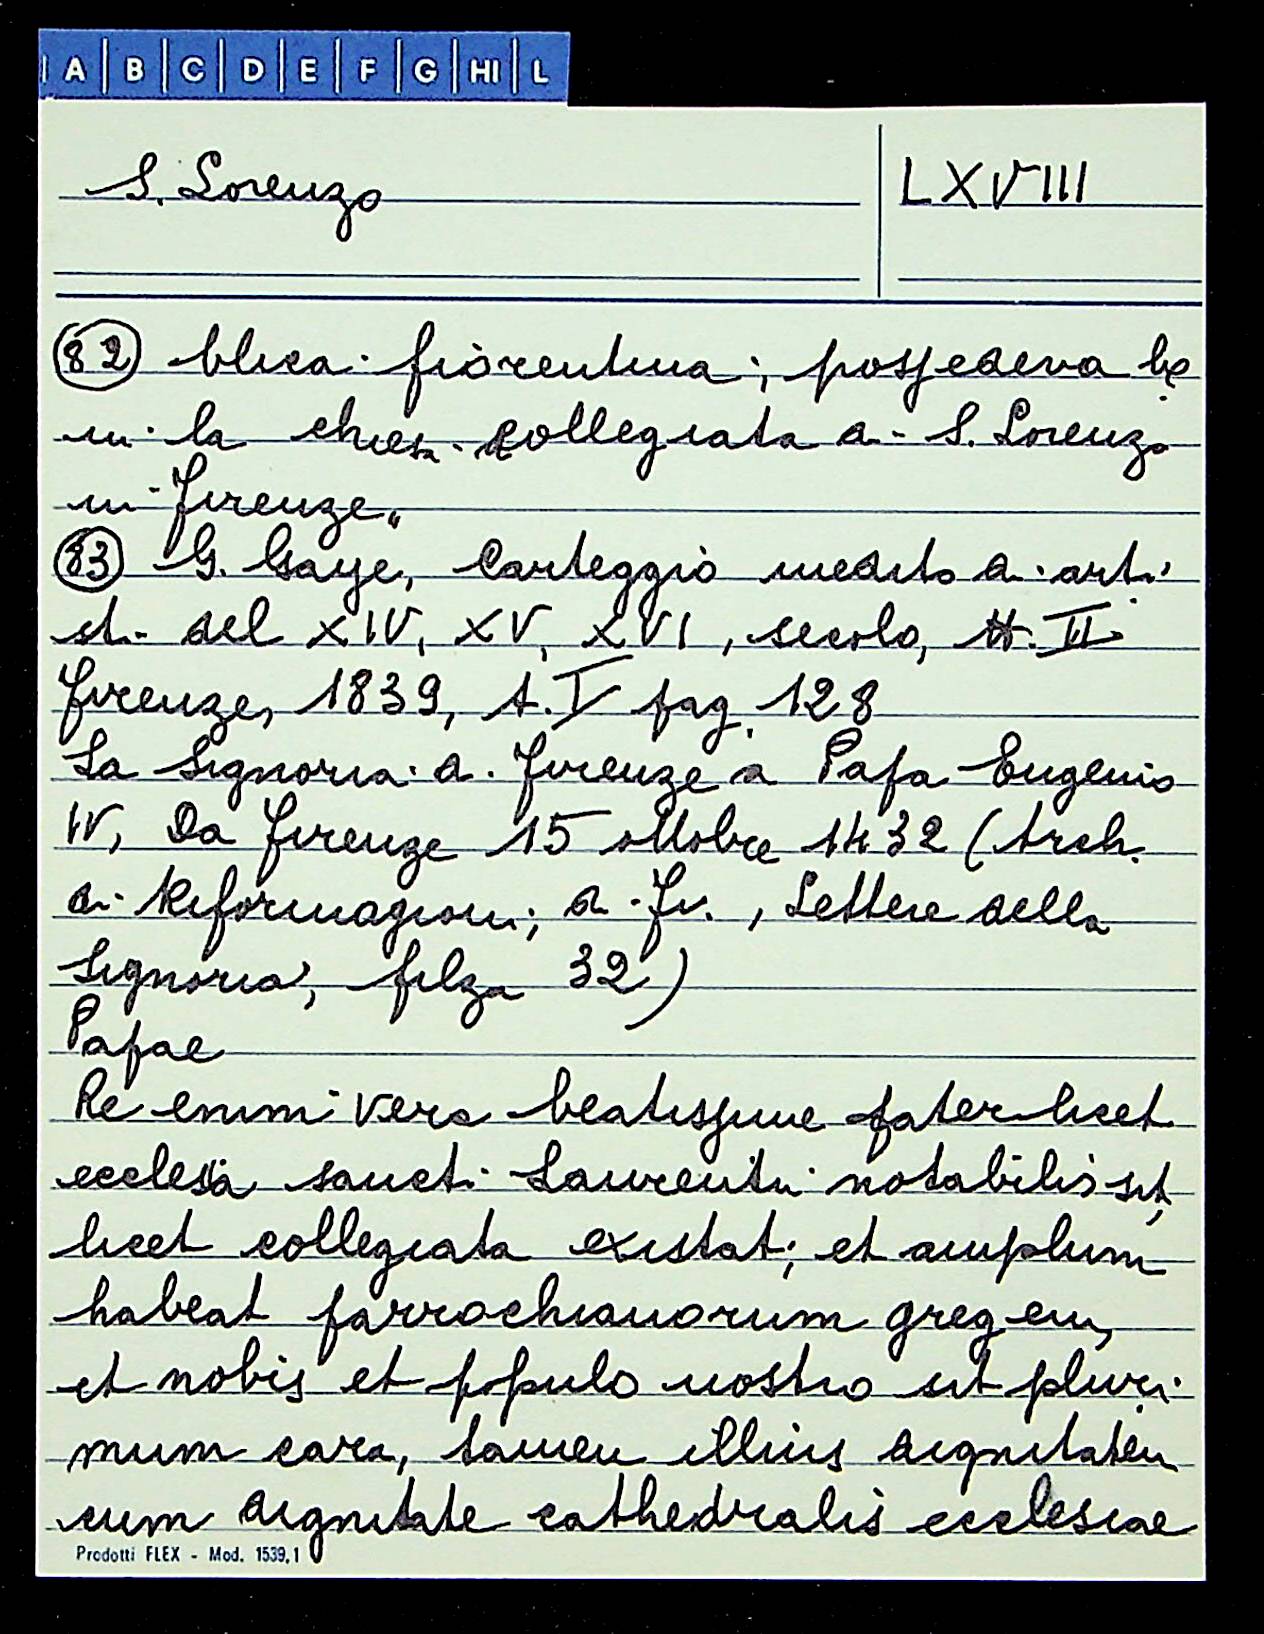 A B C D E F G HI L
S. Lorenzo
LXVIII
82 blica fiorentina; possedeva be
ni la chiesa collegiata di S. Lorenzo
in Firenze"
83 G. Gaye, Carteggio inedito di arti
sti del XIV, XV, XVI, secolo, II
Firenze, 1839, t. I pag. 128
La Signoria di Firenze a Papa Eugenio
IV, Da Firenze 15 ottobre 1432 (Arch.
di Riformagioni; di Fir., Lettere della
Signoria, filza 32)
Papae
Re enim vera beatissime pater licet
ecclesia sancti Laurentii notabilis sit,
licet collegiata existat; et amplum
habeat parrochianorum gregem,
et nobis et populo nostro sit pluri
mum cara, tamen illius dignitatem
cum dignitate cathedralis ecclesiae
Prodotti FLEX - Mod. 1539,1